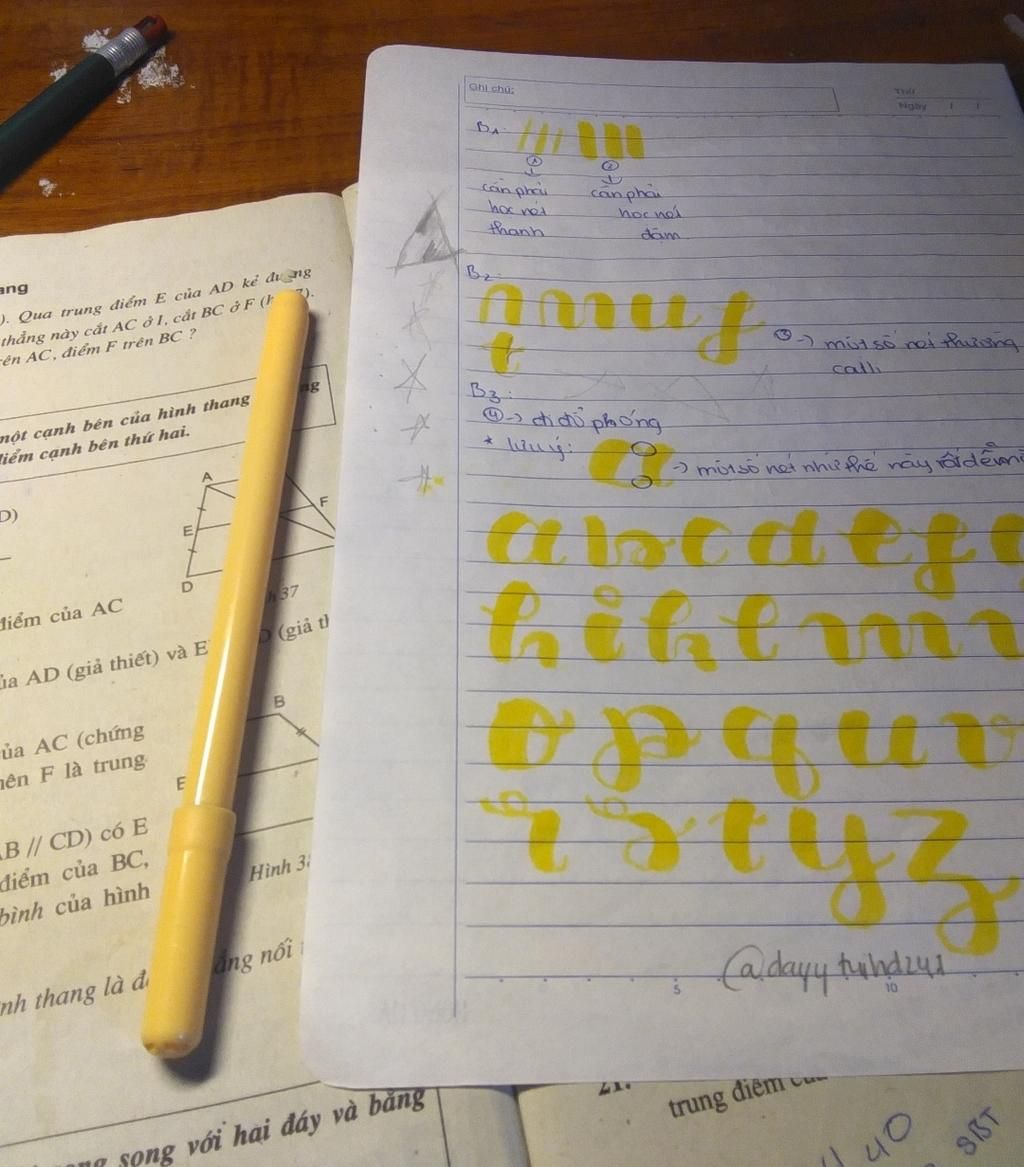 Ghi chú:
Thứ
Ngày / /
B1:
①
②
cần phải
học nét
thanh
cần phải
học nét
đậm
B2:
n m u y
t
③ -> một số nét thường
calli
B3:
④ -> đi đủ phóng
* lưu ý:
a
-> một số nét như thế này rất dễ
a b c d e f g
h i k l m n
o p q u v
r s t y z
5
10
ang
). Qua trung điểm E của AD kẻ đường
thẳng này cắt AC ở I, cắt BC ở F
ên AC, điểm F trên BC ?
một cạnh bên của hình thang
điểm cạnh bên thứ hai.
A
F
E
D
D)
h 37
điểm của AC
ủa AD (giả thiết) và E
(giả th
B
ủa AC (chứng
nên F là trung
E
AB // CD) có E
điểm của BC,
bình của hình
Hình 38
nh thang là đ
ẳng nối
song với hai đáy và bằng
21.
trung điểm của
40
SBT